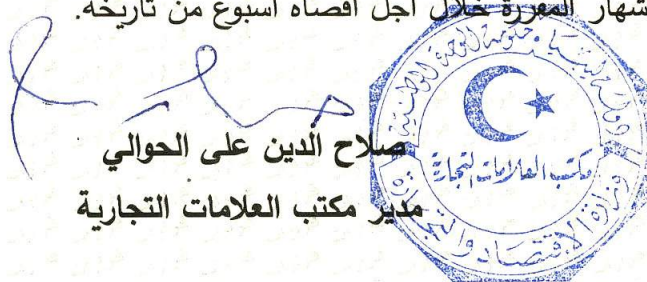 شهار المقررة خلال أجل أقصاه أسبوع من تاريخه.
صلاح الدين على الحوالي
مدير مكتب العلامات التجارية
دولة ليبيا حكومة الوحدة الوطنية
مكتب العلامات التجارية
وزارة الاقتصاد والتجارة